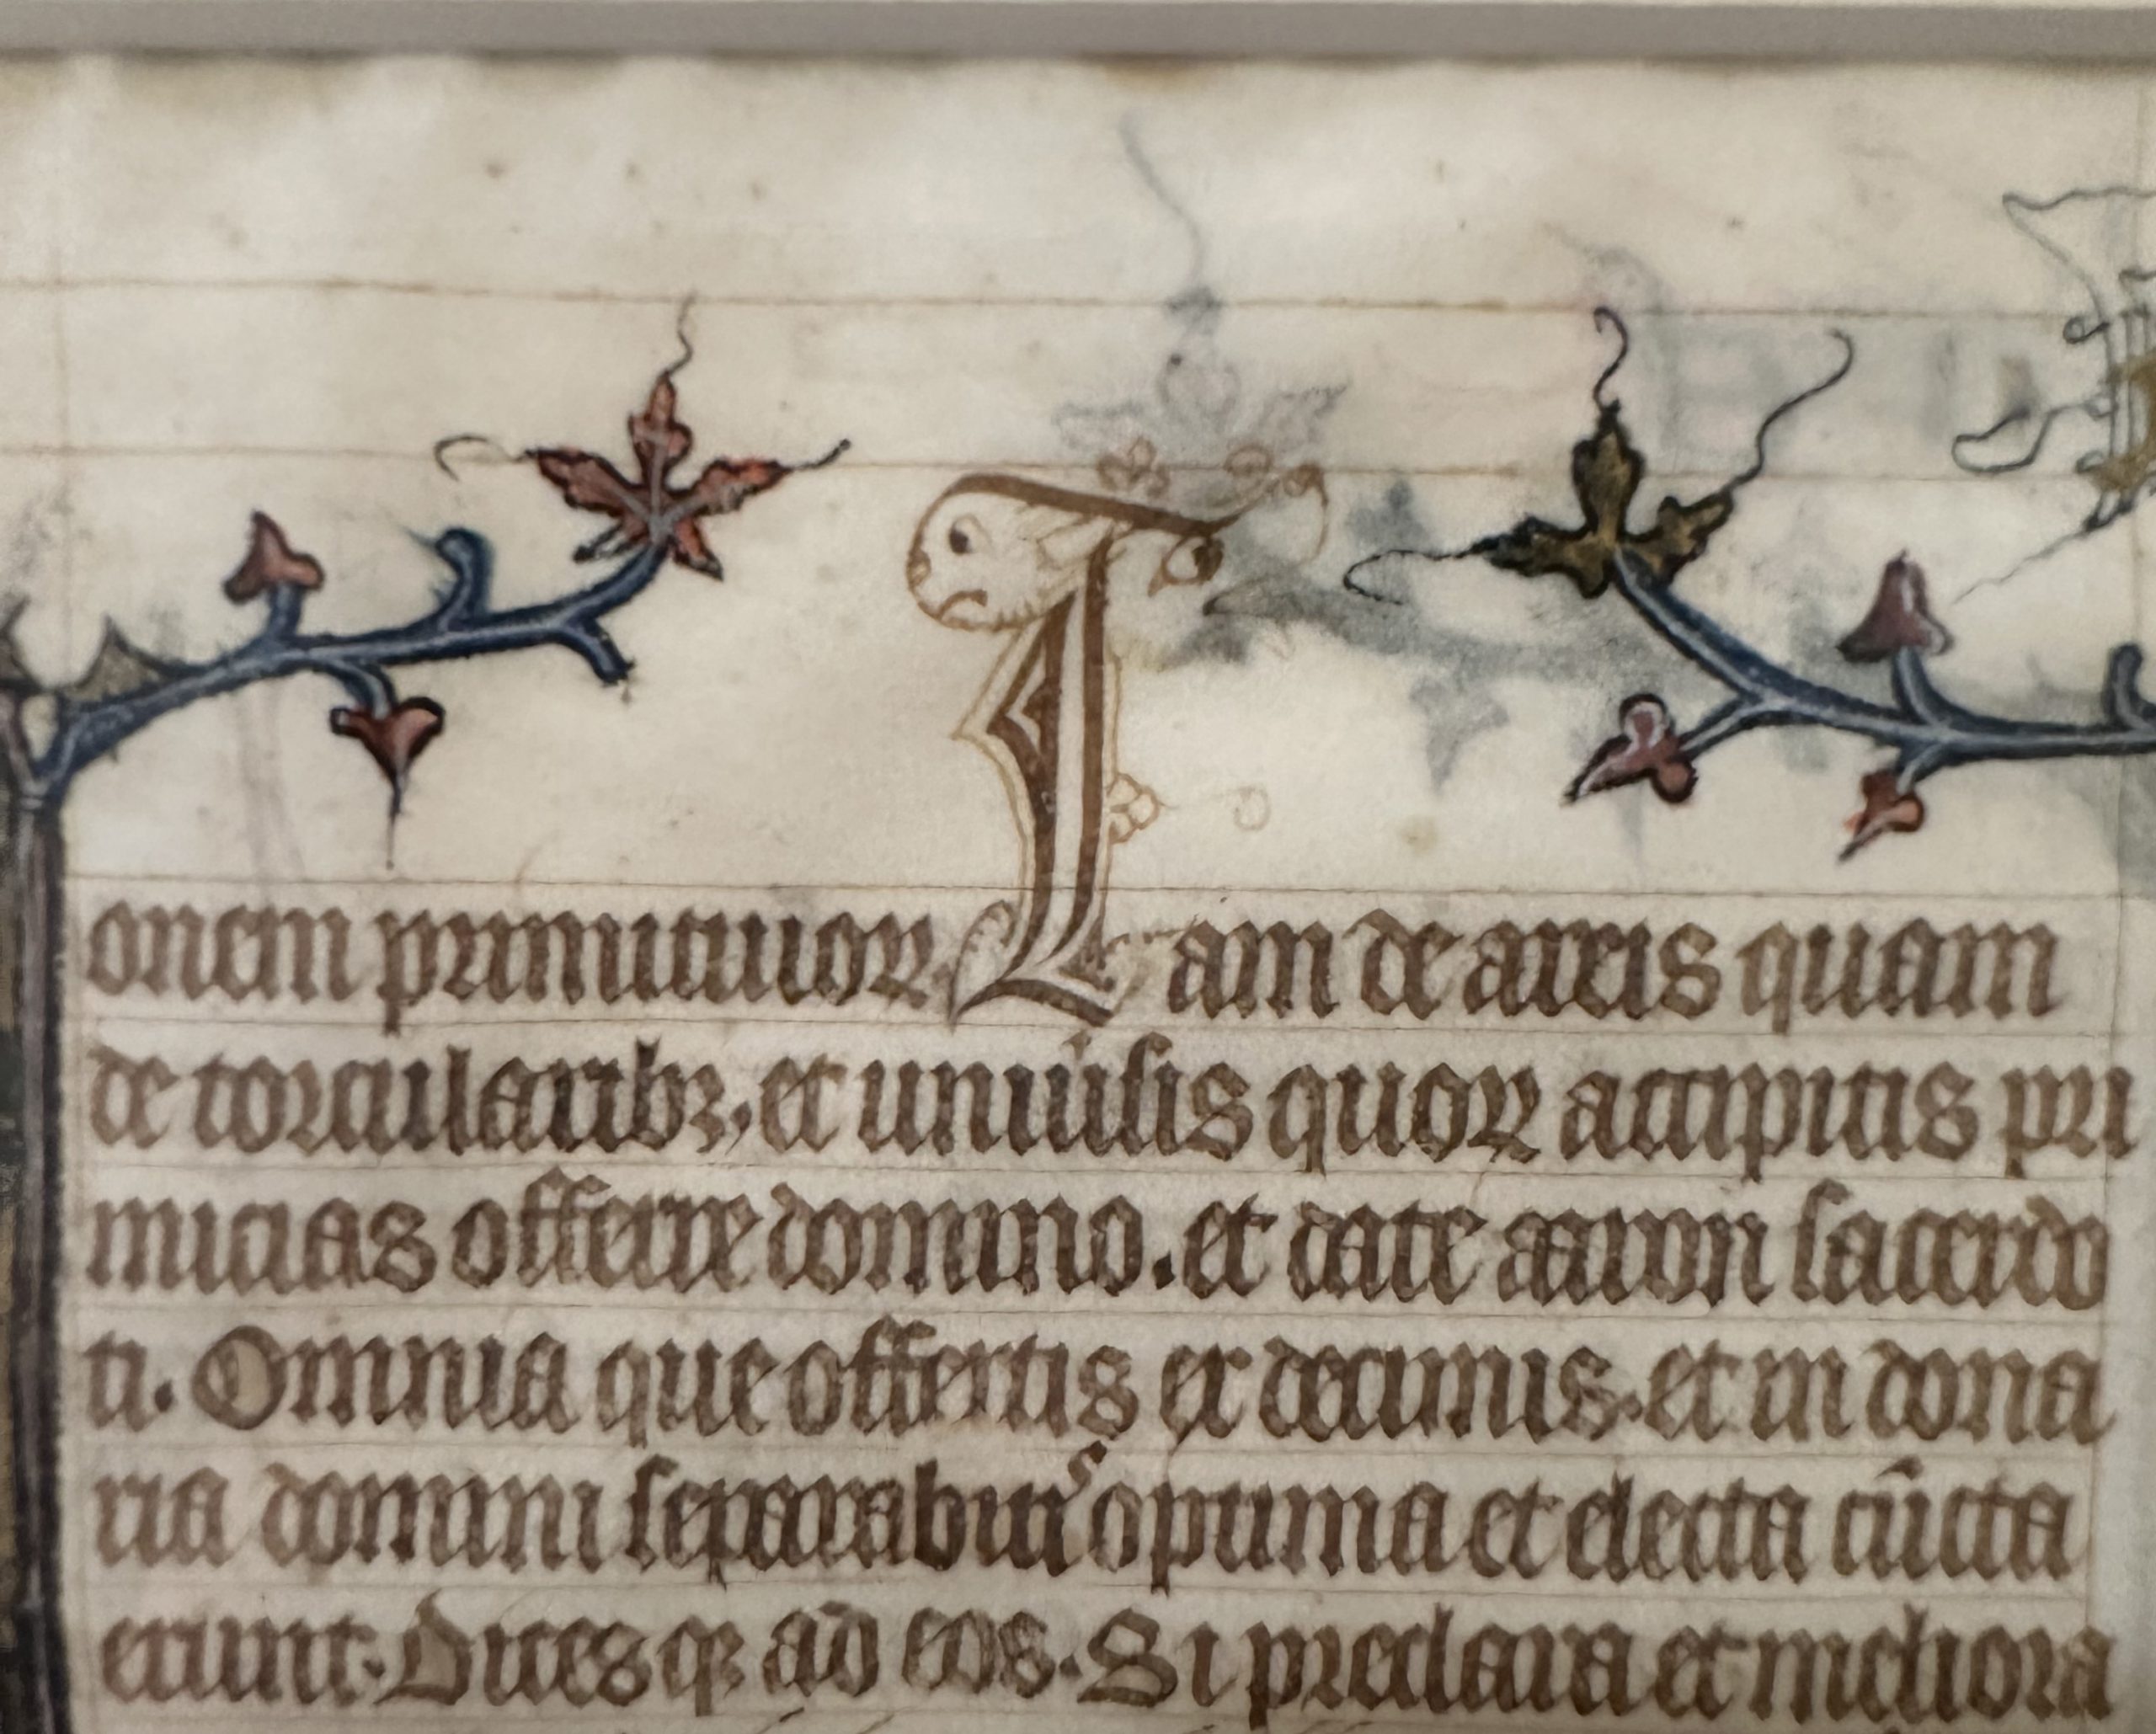 onem primitiuoꝝ Tam de areis quam
de torcularibꝫ, et uniũsis quoꝝ accipitis pri
micias offerre domino. et date aaron sacerdo
ti. Omnia que offertis ex decimis. et in dona
ria domini separabitᷣ optima et electa cũcta
erunt. Dicesqꝫ ad eos. Si preclara et meliora